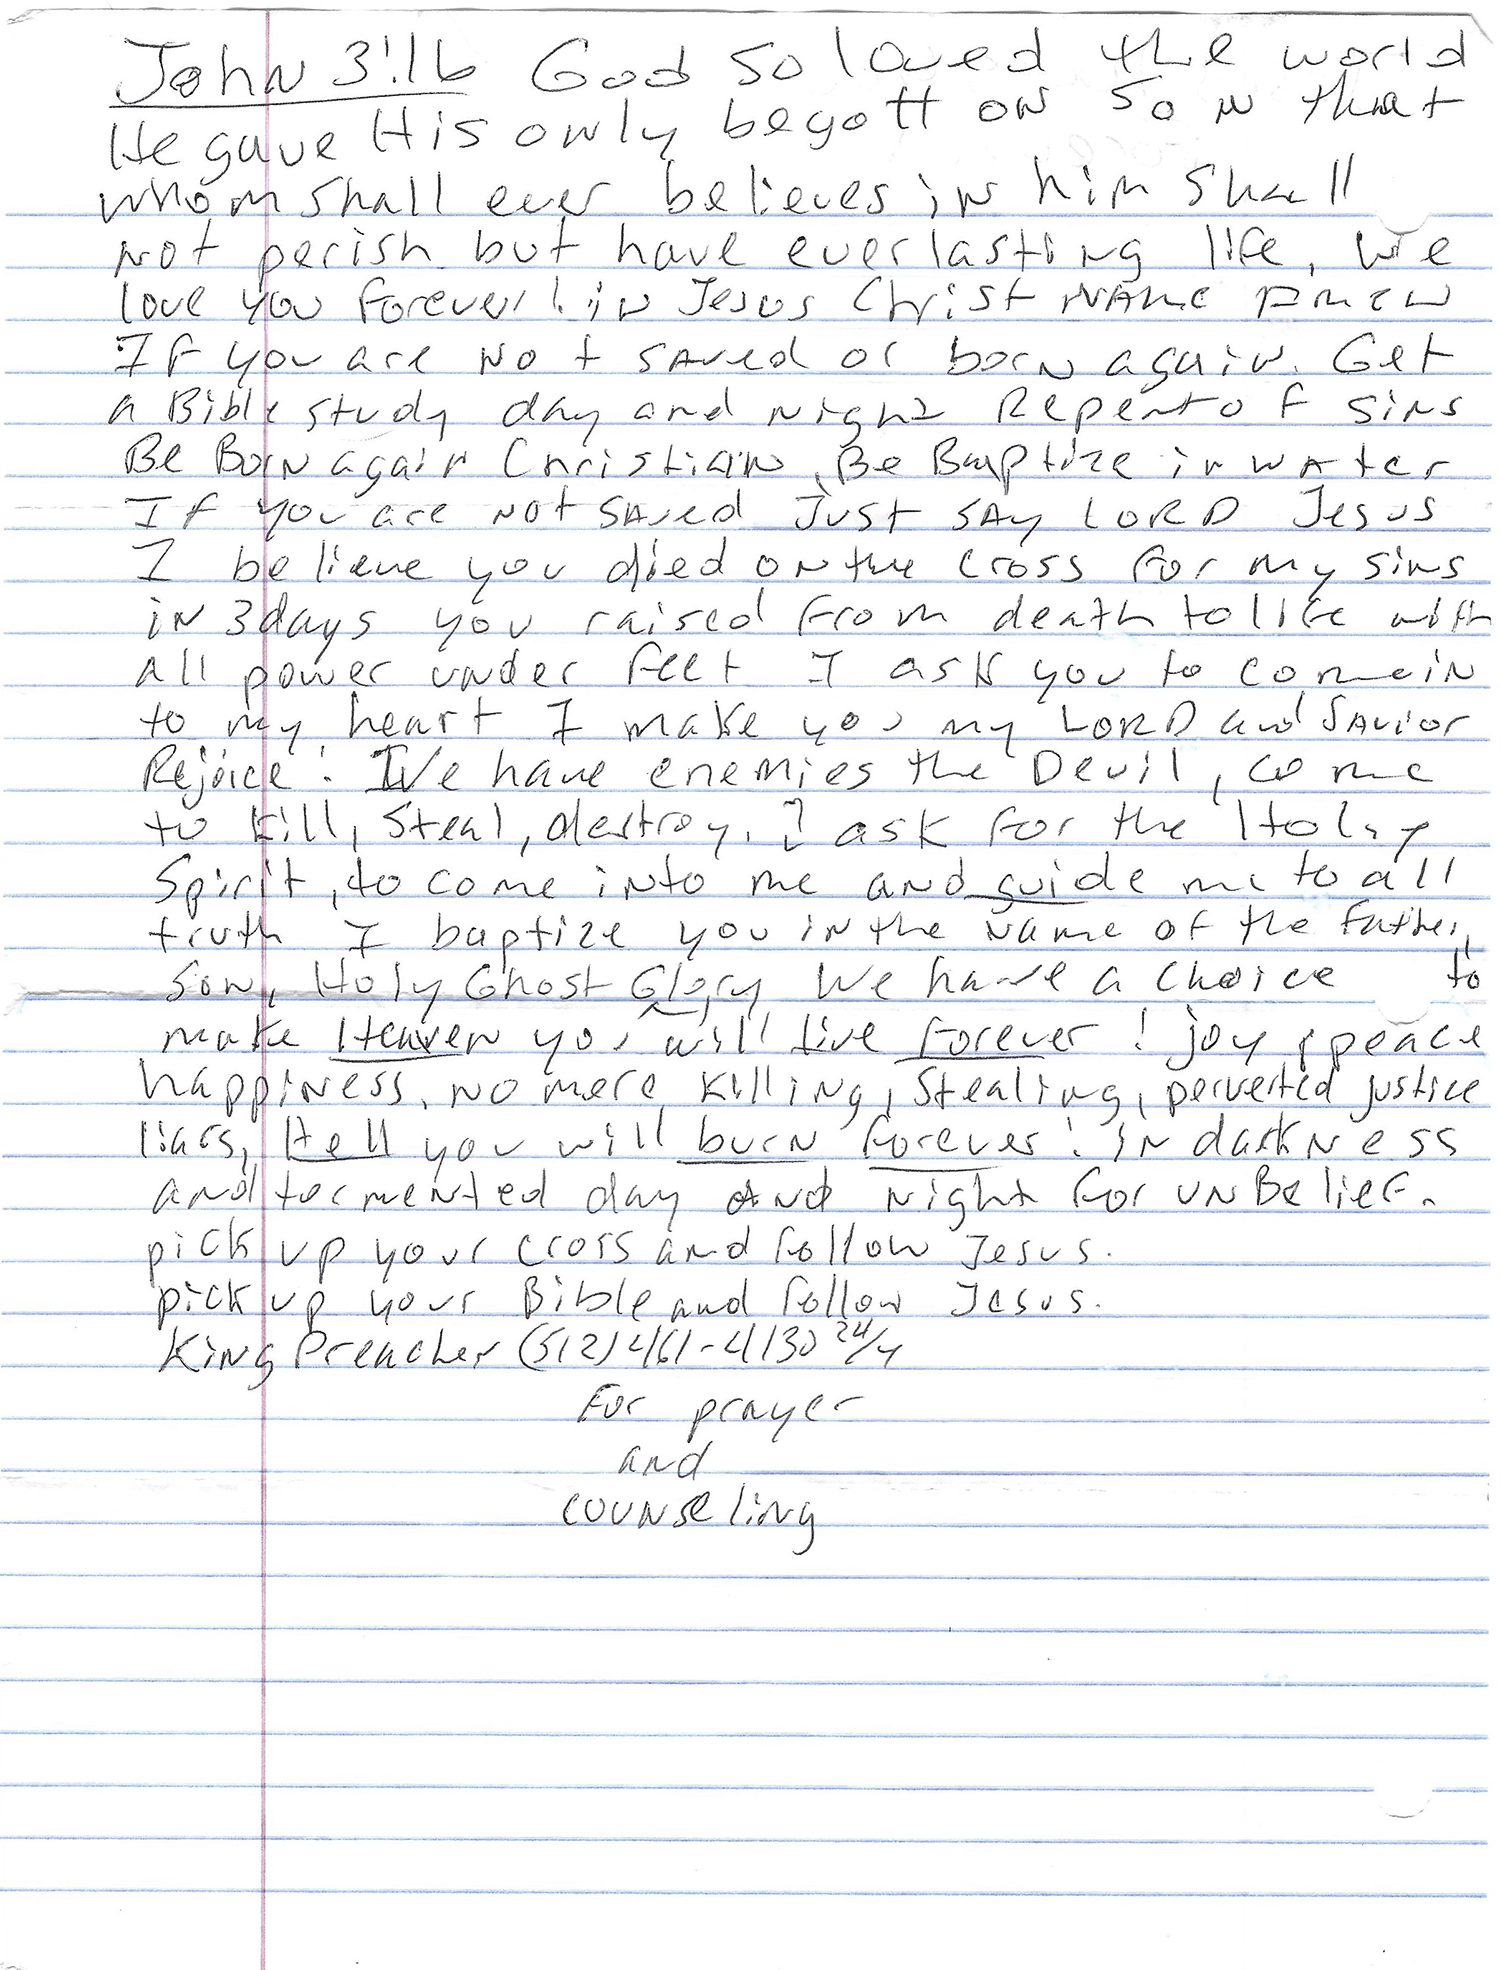 John 3:16 God so loved the world
He gave His only begott on Son that
whom shall ever believes in him shall
not perish but have everlasting life, we
love you forever! in Jesus Christ NAME Amen
If you are not saved or born again. Get
a Bible study day and night Repent of sins
Be Born again Christian, Be Baptize in water
If you are not saved Just say LORD Jesus
I believe you died on the cross for my sins
in 3 days you raised from death to life with
all power under feet I ask you to come in
to my heart I make you my LORD and Savior
Rejoice! We have enemies the Devil, come
to kill, steal, destroy. I ask for the Holy
Spirit, to come into me and guide me to all
truth I baptize you in the name of the father,
Son, Holy Ghost Glory We have a choice to
make Heaven you will live forever! joy, peace
happiness, no more killing, stealing, perverted justice
liars, Hell you will burn forever! in darkness
and tormented day and night for unBelief.
pick up your cross and follow Jesus.
pick up your Bible and follow Jesus.
King Preacher (512) 461-4130 24/7
For prayer
and
counseling